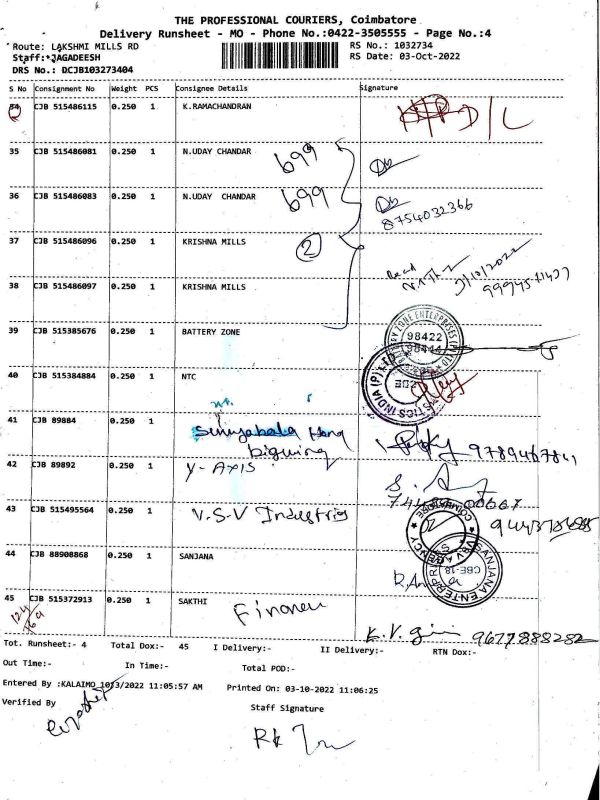 THE PROFESSIONAL COURIERS, Coimbatore
Delivery Runsheet - MO - Phone No.:0422-3505555 - Page No.:4
Route: LAKSHMI MILLS RD RS No.: 1032734
Staff:*JAGADEESH RS Date: 03-Oct-2022
DRS No.: DCJB103273404
S No Consignment No Weight PCS Consignee Details Signature
34 CJB 515486115 0.250 1 K.RAMACHANDRAN D/L
35 CJB 515486081 0.250 1 N.UDAY CHANDAR 699
36 CJB 515486083 0.250 1 N.UDAY CHANDAR 699
8754032366
37 CJB 515486096 0.250 1 KRISHNA MILLS 2
38 CJB 515486097 0.250 1 KRISHNA MILLS
39 CJB 515385676 0.250 1 BATTERY ZONE
98422
40 CJB 515384884 0.250 1 NTC
41 CJB 89884 0.250 1
42 CJB 89892 0.250 1 Y-AXIS
43 CJB 515495564 0.250 1 V.S.V Industris
44 CJB 88908868 0.250 1 SANJANA
SANJANA ENTERPRISES
CBE-18
45 CJB 515372913 0.250 1 SAKTHI Finance
9677888282
Tot. Runsheet:- 4 Total Dox:- 45 I Delivery:- II Delivery:- RTN Dox:-
Out Time:- In Time:- Total POD:-
Entered By :KALAIMO 10/3/2022 11:05:57 AM Printed On: 03-10-2022 11:06:25
Verified By Staff Signature